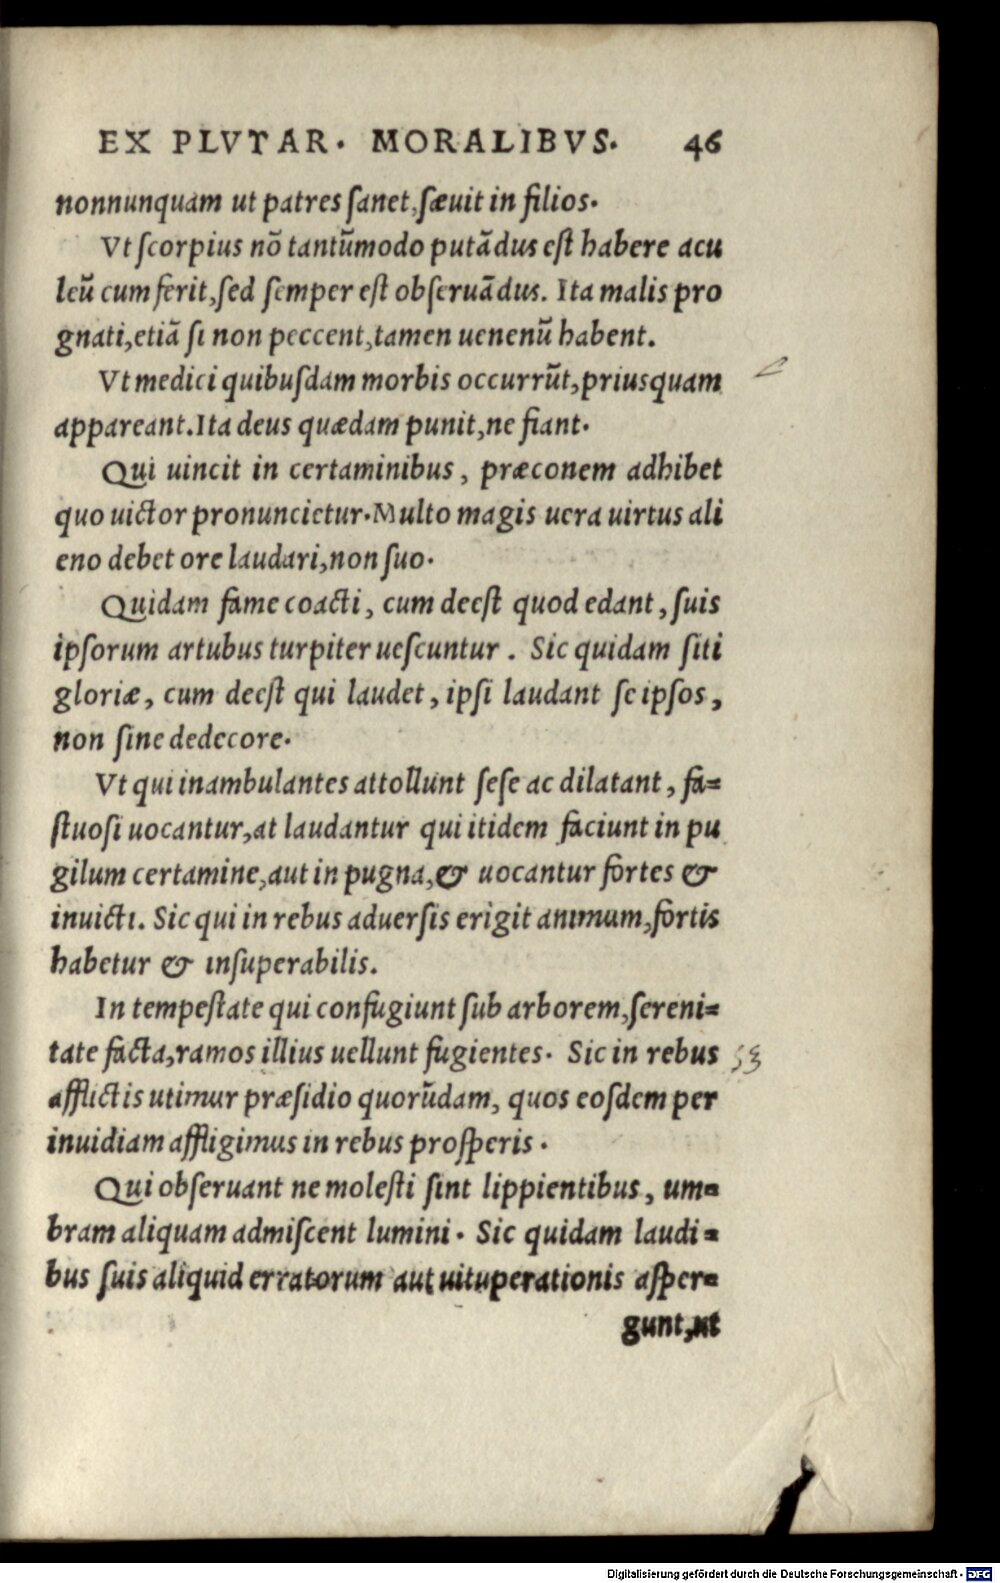 EX PLVTAR. MORALIBVS. 46
nonnunquam ut patres ſanet, ſæuit in filios.
Vt ſcorpius nō tantūmodo putādus eſt habere acu
leū cum ferit, ſed ſemper eſt obſeruādus. Ita malis pro
gnati, etiā ſi non peccent, tamen uenenū habent.
Vt medici quibuſdam morbis occurrūt, priusquam
appareant. Ita deus quædam punit, ne fiant.
Qui uincit in certaminibus, præconem adhibet
quo uictor pronuncietur. Multo magis uera uirtus ali
eno debet ore laudari, non ſuo.
Quidam fame coacti, cum deeſt quod edant, ſuis
ipſorum artubus turpiter ueſcuntur. Sic quidam ſiti
gloriæ, cum deeſt qui laudet, ipſi laudant ſe ipſos,
non ſine dedecore.
Vt qui inambulantes attollunt ſeſe ac dilatant, fa=
ſtuoſi uocantur, at laudantur qui itidem faciunt in pu
gilum certamine, aut in pugna, & uocantur fortes &
inuicti. Sic qui in rebus aduerſis erigit animum, fortis
habetur & inſuperabilis.
In tempeſtate qui confugiunt ſub arborem, ſereni=
tate facta, ramos illius uellunt fugientes. Sic in rebus 53
afflictis utimur præſidio quorūdam, quos eoſdem per
inuidiam affligimus in rebus proſperis.
Qui obſeruant ne moleſti ſint lippientibus, um=
bram aliquam admiſcent lumini. Sic quidam laudi=
bus ſuis aliquid erratorum aut uituperationis aſper=
gunt, ut
Digitalisierung gefördert durch die Deutsche Forschungsgemeinschaft - DFG